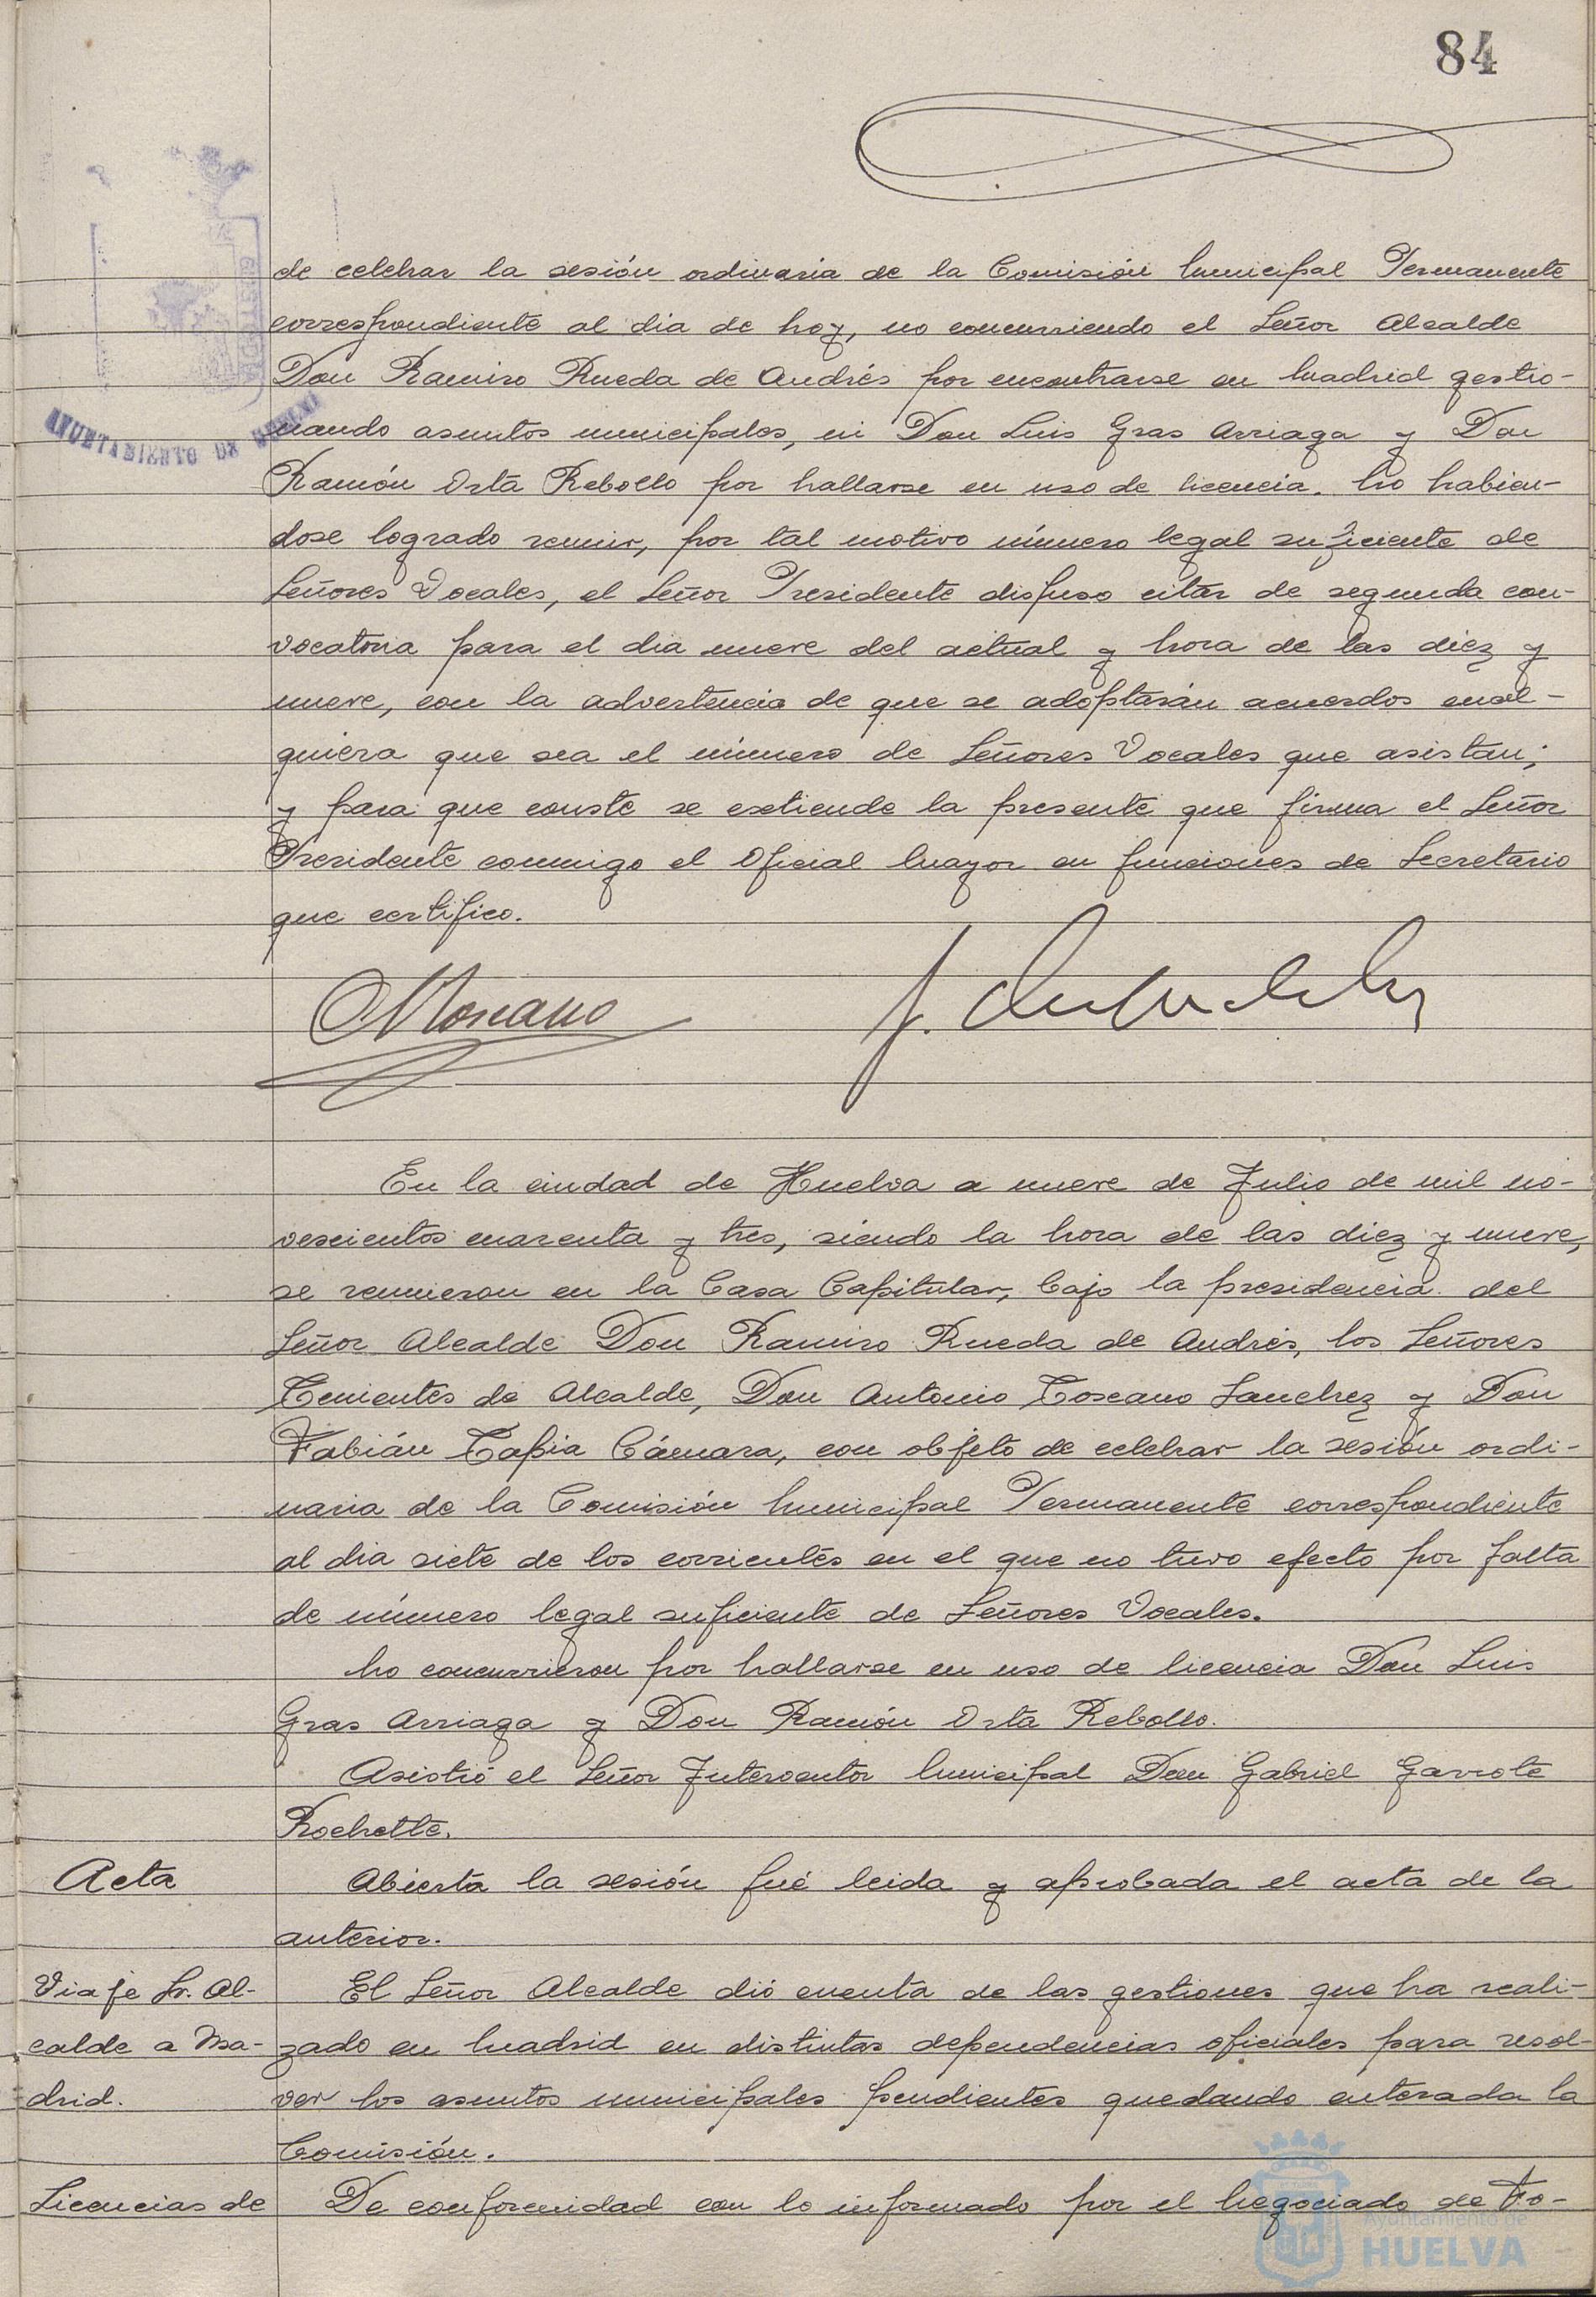 84
de celebrar la sesión ordinaria de la Comisión Municipal Permanente
correspondiente al dia de hoy, no concurriendo el Señor Alcalde
Don Ramiro Rueda de Andrés por encontrarse en Madrid gestio-
nando asuntos municipales, ni Don Luis Gras Arriaga y Don
Ramón Orta Rebollo por hallarse en uso de licencia. No habien-
dose logrado reunir, por tal motivo número legal suficiente de
Señores Vocales, el Señor Presidente dispuso citar de segunda con-
vocatoria para el dia nueve del actual y hora de las diez y
nueve, con la advertencia de que se adoptarán acuerdos cual-
quiera que sea el número de Señores Vocales que asistan;
y para que conste se extiende la presente que firma el Señor
Presidente conmigo el Oficial Mayor en funciones de Secretario
que certifico.
AYUNTAMIENTO DE HUELVA
En la ciudad de Huelva a nueve de Julio de mil no-
vescientos cuarenta y tres, siendo la hora de las diez y nueve,
se reunieron en la Casa Capitular, bajo la presidencia del
Señor Alcalde Don Ramiro Rueda de Andrés, los Señores
Tenientes de Alcalde, Don Antonio Toscano Sanchez y Don
Fabián Tapia Cámara, con objeto de celebrar la sesión ordi-
naria de la Comisión Municipal Permanente correspondiente
al dia siete de los corrientes en el que no tuvo efecto por falta
de número legal suficiente de Señores Vocales.
No concurrieron por hallarse en uso de licencia Don Luis
Gras Arriaga y Don Ramón Orta Rebollo.
Asistió el Señor Interventor Municipal Don Gabriel Garrote
Rochette.
Acta
Abierta la sesión fué leida y aprobada el acta de la
anterior.
Viaje Sr. Al-
calde a Ma-
drid.
El Señor Alcalde dió cuenta de las gestiones que ha reali-
zado en Madrid en distintas dependencias oficiales para resol-
ver los asuntos municipales pendientes quedando enterada la
Comisión.
Licencias de
De conformidad con lo informado por el Negociado de Fo-
Ayuntamiento de
HUELVA